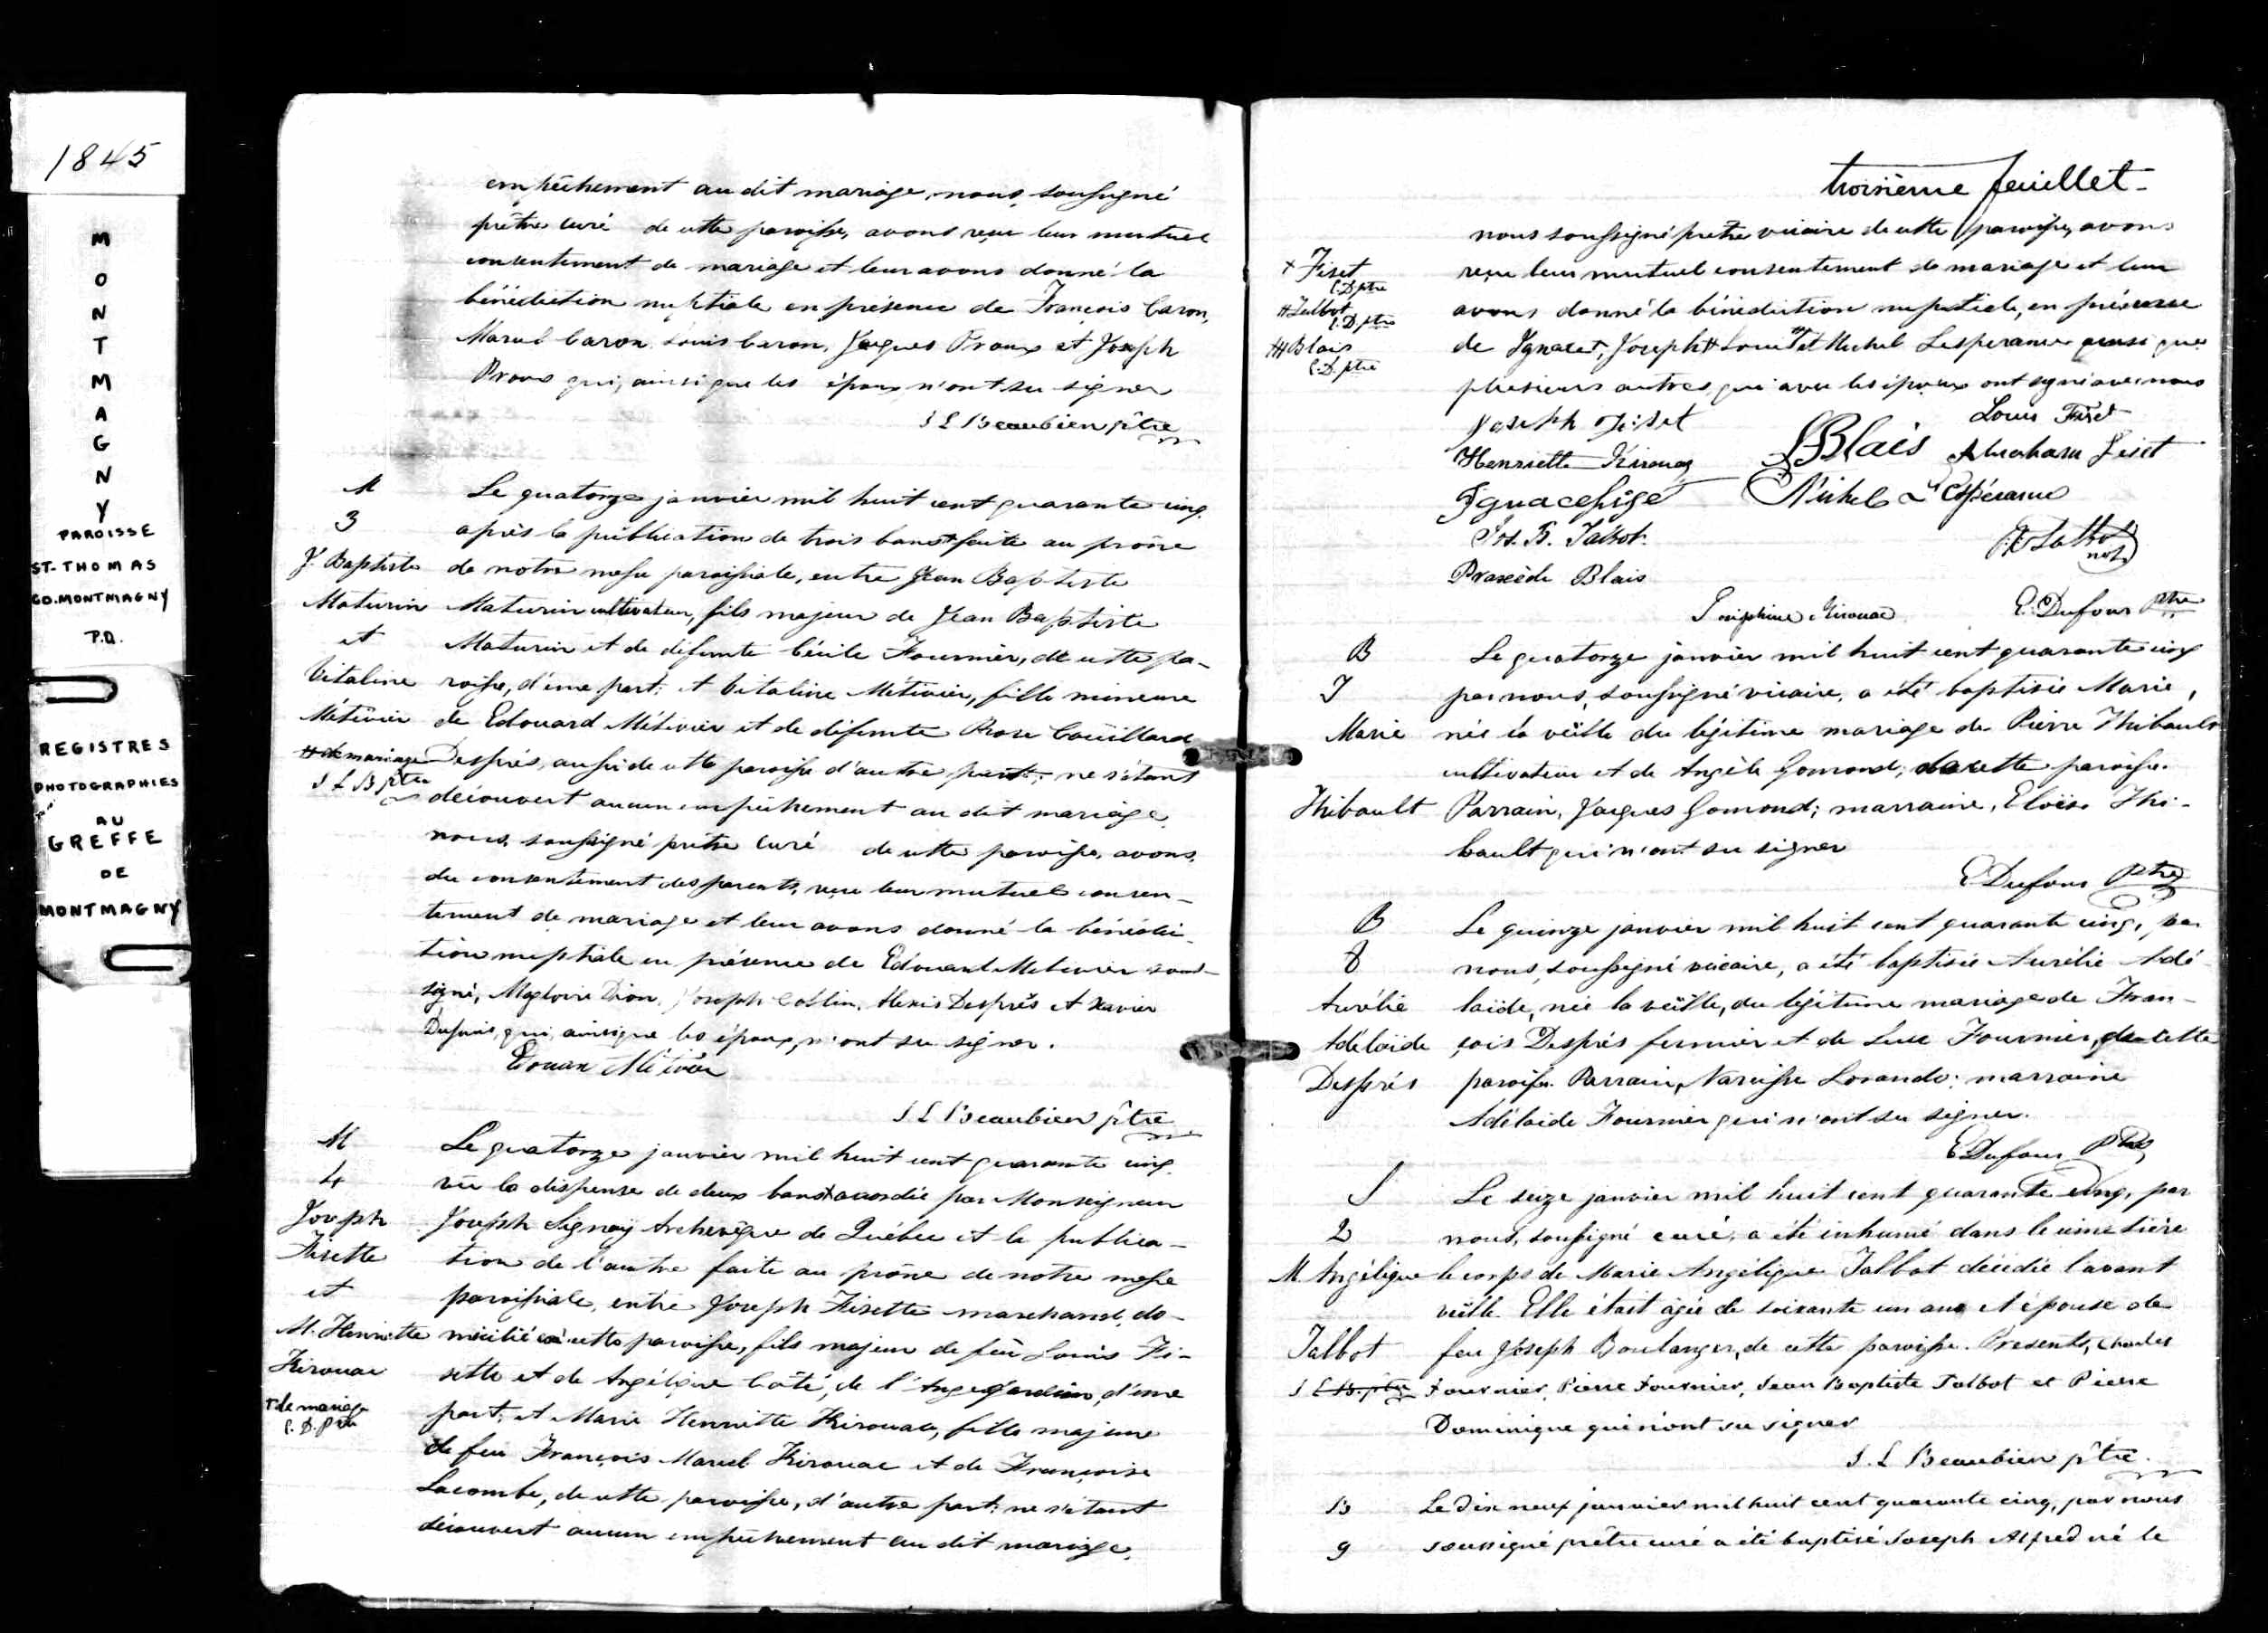 1845
MONTMAGNY
PAROISSE
ST-THOMAS
CO. MONTMAGNY
P.Q.
REGISTRES
PHOTOGRAPHIES
AU
GREFFE
DE
MONTMAGNY
empêchement au dit mariage, nous, soussigné
prêtre curé de cette paroisse, avons reçu leur mutuel
consentement de mariage et leur avons donné la
bénédiction nuptiale en présence de François Caron,
Marcel Caron, Louis Caron, Jacques Proux et Joseph
Proux qui, ainsi que les époux n'ont su signer
J L Beaubien ptre
M
3
J. Baptiste
Maturin
et
Vitaline
Métivier
# de mariage
J L B ptre
Le quatorze janvier mil huit cent quarante cinq
après la publication de trois bans # faite au prône
de notre messe paroissiale, entre Jean Baptiste
Maturin cultivateur, fils majeur de Jean Baptiste
Maturin et de défunte Cécile Fournier, de cette pa-
roisse, d'une part; et Vitaline Métivier, fille mineure
de Edouard Métivier et de défunte Rose Couillard
Després, aussi de cette paroisse d'autre part; ne s'étant
découvert aucun empêchement au dit mariage,
nous, soussigné prêtre curé de cette paroisse, avons,
du consentement des parents, reçu leur mutuel consen-
tement de mariage et leur avons donné la bénédic-
tion nuptiale en présence de Edouard Metivier sous-
signé, Magloire Dion, Joseph Collin, Alexis Després et Xavier
qui, ainsi que les époux, n'ont su signer.
Edouar Métivier
J L Beaubien ptre
M
4
Joseph
Fisette
et
M. Henriette
Kirouac
+ de mariage
E. D. Ptre
Le quatorze janvier mil huit cent quarante cinq
vu la dispense de deux bans + accordée par Monseigneur
Joseph Signaÿ Archevêque de Québec et la publica-
tion de l'autre faite au prône de notre messe
paroissiale, entre Joseph Fisette marchand, do-
micilié en cette paroisse, fils majeur de feu Louis Fi-
sette et de Angélique Côté, de l'Ange gardien, d'une
part; et Marie Henriette Kirouac, fille majeure
de feu François Marcel Kirouac et de Françoise
Lacombe, de cette paroisse, d'autre part; ne s'étant
découvert aucun empêchement au dit mariage,
troisième feuillet-
+ Fiset
E. D. ptre
# Talbot
E. D. ptre
## Blais
E. D. ptre
nous soussigné prêtre vicaire de cette paroisse, avons
reçu leur mutuel consentement de mariage et leur
avons donné la bénédiction nuptiale, en présence
de Ignace +, Joseph # Louis ## et Michel Lesperance ainsi que
plusieurs autres, qui avec les époux ont signé avec nous
Joseph Fiset
Louis Fiset
Henriette Kirouac
LBlais
Abraham Fiset
Ignace fisé
Michel L'Espérance
Jos. B. Talbot.
not.
Praxède Blais
Josephine Kirouac
E. Dufour Ptre
B
7
Marie
Thibault
Le quatorze janvier mil huit cent quarante cinq
par nous, soussigné vicaire, a été baptisée Marie,
née la veille du légitime mariage de Pierre Thibault
cultivateur et de Angèle Gomond, de cette paroisse.
Parrain, Jacques Gomond; marraine, Eloïse Thi-
bault qui n'ont su signer
E Dufour Ptre
B
8
Aurélie
Adélaïde
Després
Le quinze janvier mil huit cent quarante cinq, par
nous soussigné vicaire, a été baptisée Aurélie Adé-
laïde, née la veille, du légitime mariage de Fran-
çois Després fermier et de Luce Fournier, de cette
paroisse. Parrain, Narcisse Lorando; marraine
Adélaïde Fournier qui n'ont su signer.
E Dufour Ptre
S
2
M. Angélique
Talbot
J L B. ptre
Le seize janvier mil huit cent quarante cinq, par
nous, soussigné curé, a été inhumé dans le cimetière
le corps de Marie Angélique Talbot décédée l'avant
veille. Elle était âgée de soixante un ans et épouse de
feu Joseph Boulanger, de cette paroisse. Presents, Charles
Fournier, Pierre Fournier, Jean Baptiste Talbot et Pierre
Dominique qui n'ont su signer
J. L Beaubien ptre.
B
9
Le dix neuf janvier mil huit cent quarante cinq, par nous
soussigné prêtre curé a été baptisé Joseph Alfred né le